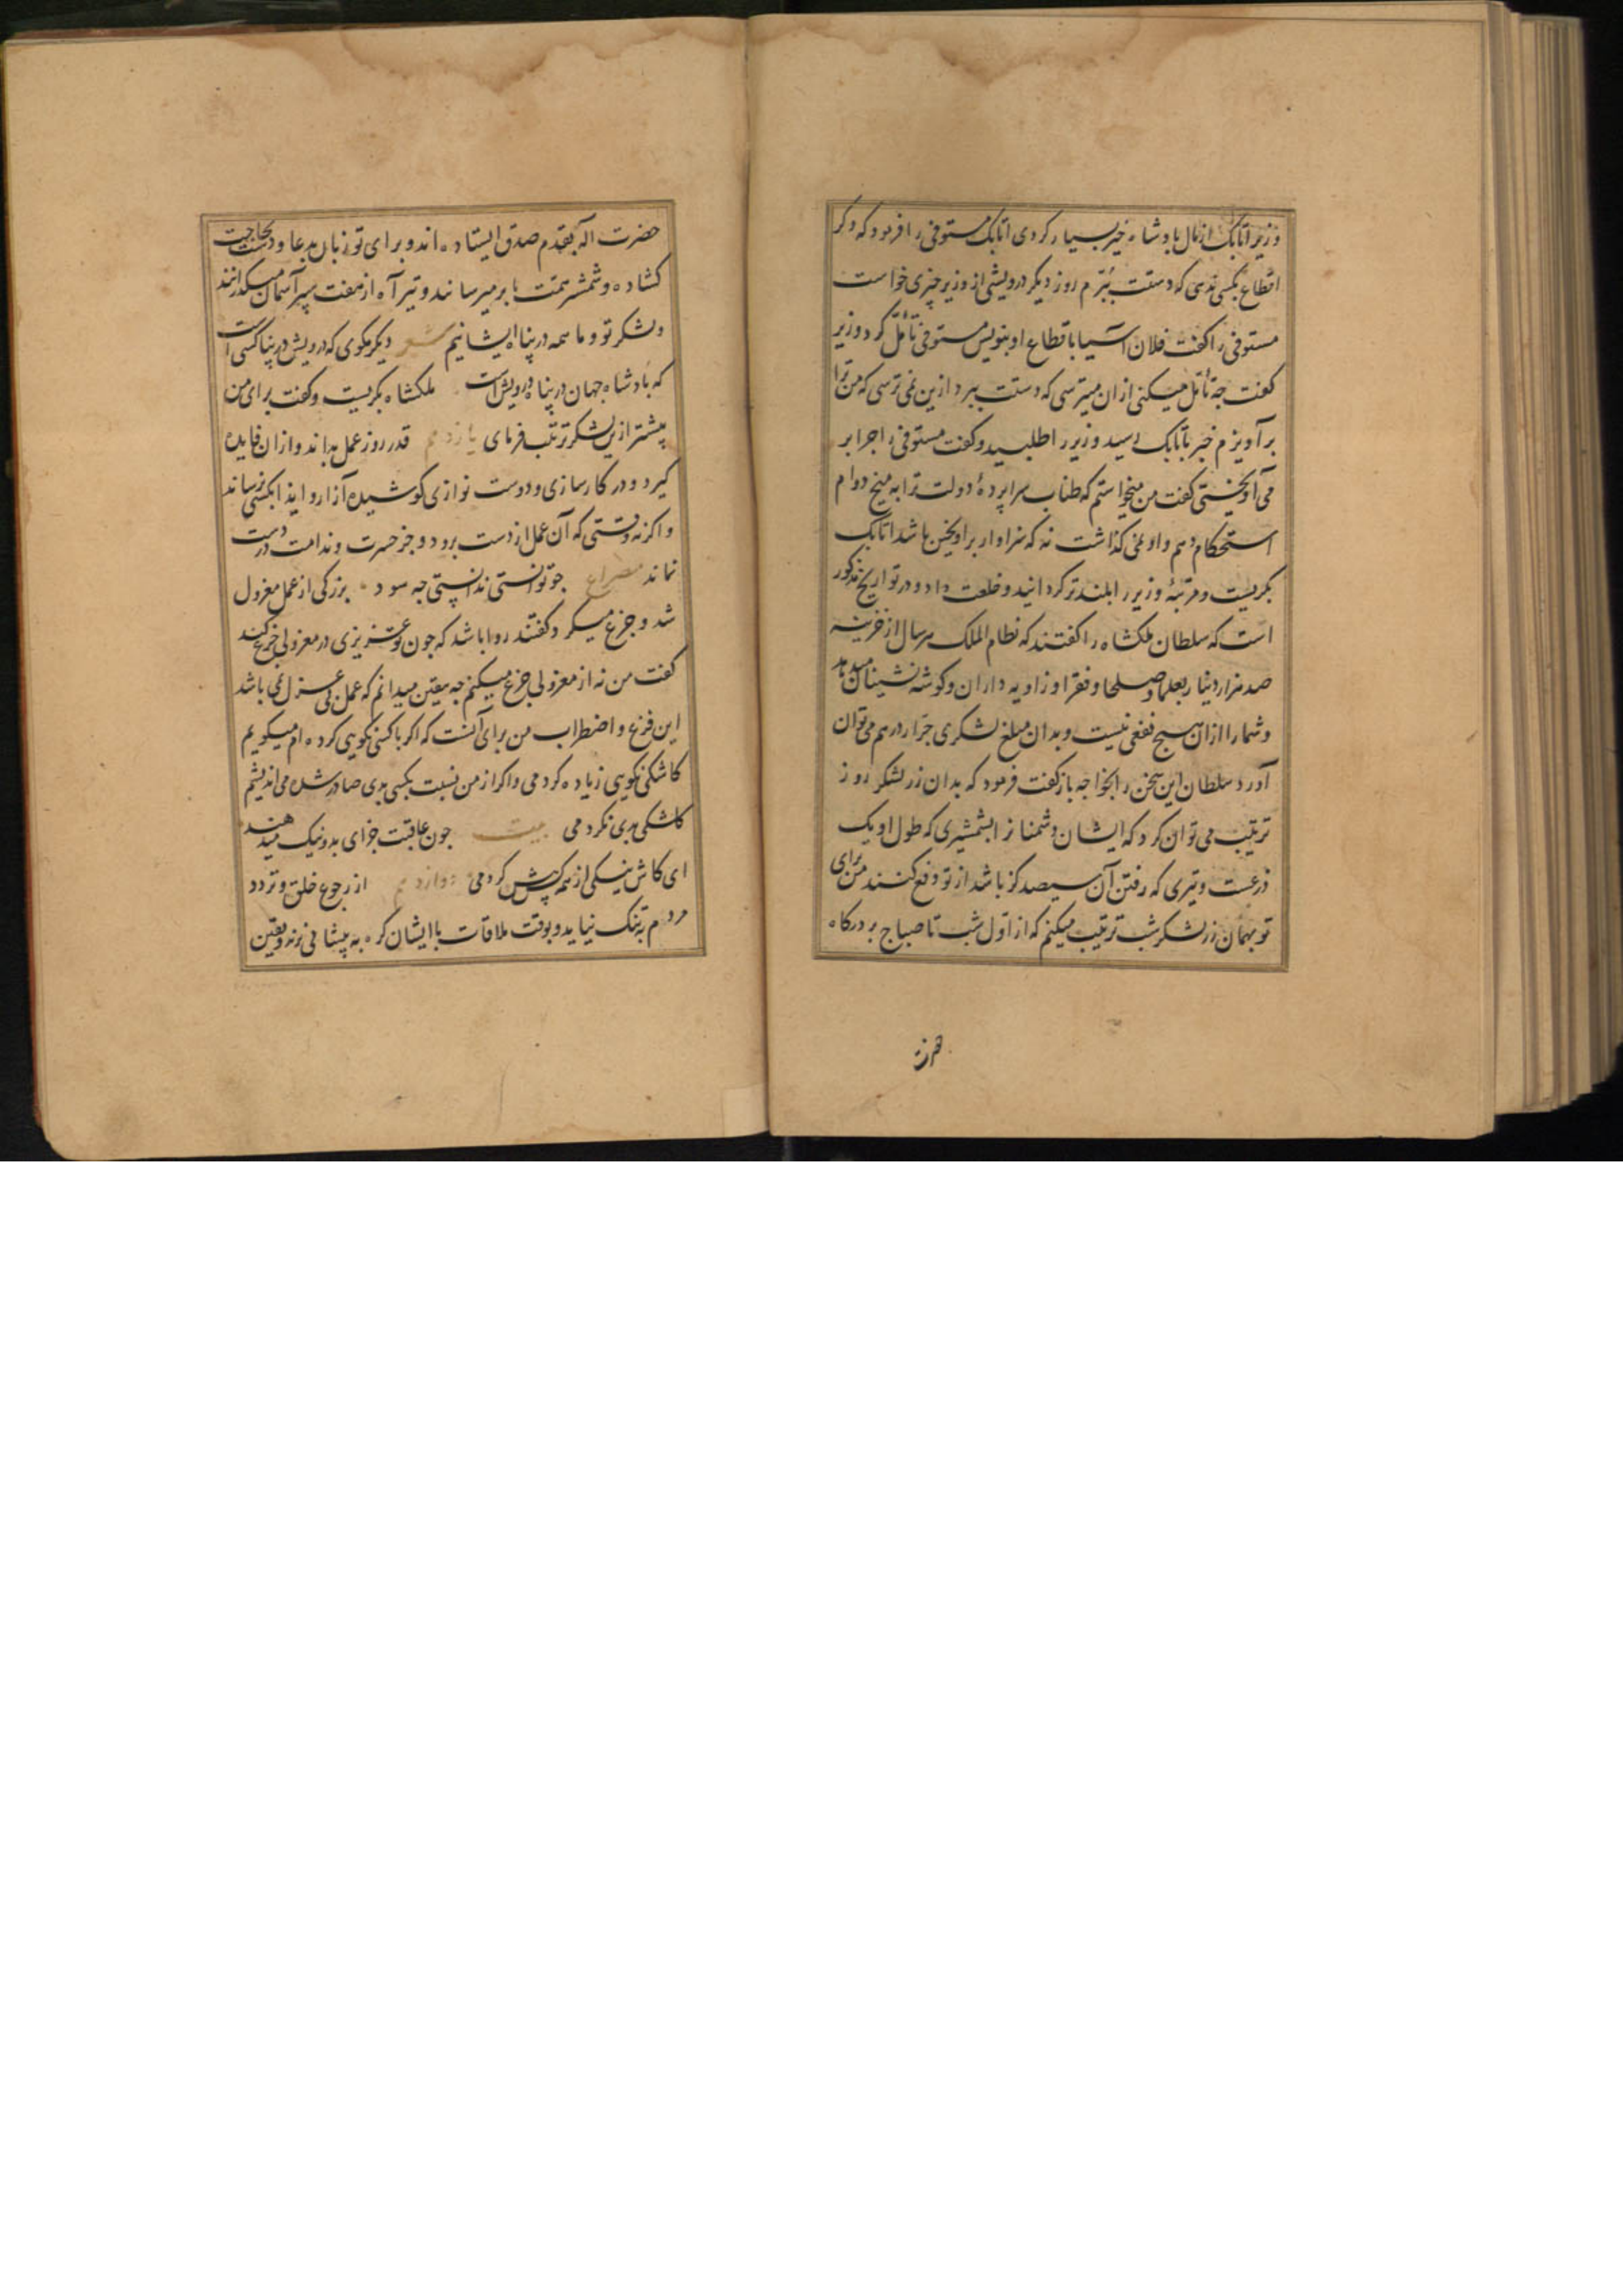 وزیر اتابک از مال پادشاه خیر بسیار کردی اتابک مستوفی را فرمود که دکر
اقطاع بکسی ندهی که دستت ببرم روز دیکر درویشی از وزیر چیزی خواست
مستوفی را کفت فلان آسیا باقطاع او بنویس مستوفی تأمل کرد وزیر
کفت چه تأمل میکنی از ان میترسی که دستت ببرد ازین نمی ترسی که من ترا
برآویزم خبر باتابک رسید وزیر را طلبید و کفت مستوفی را چرا بر
می آویختی کفت من میخواستم که طناب سراپردهٔ دولت ترا به میخ دوام
استحکام دهم و او نمی کذاشت نه که سزاوار براویختن باشد اتابک
بکریست و مرتبهٔ وزیر را بلندتر کردانید و خلعت داد و در تواریخ مذکور
است که سلطان ملکشاه را کفتند که نظام الملک هر سال از خزینه
صد هزار دینار بعلما و صلحا و فقرا و زاویه داران و کوشه نشینان میدهد
و شما را از ان هیچ نفعی نیست و بدان مبلغ لشکری جرار درهم می توان
آورد سلطان این سخن را بخواجه بازکفت فرمود که بدان زر لشکر روز
ترتیب می توان کرد که ایشان دشمنانرا بشمشیری که طول او یک
ذرعست و تیری که رفتن آن سیصد کز باشد از تو دفع کنند من برای
تو بهمان زر لشکر شب ترتیب میکنم که از اول شب تا صباح بدرکاه
حضرت اله بقدم صدق ایستاده اند و برای تو زبان بدعا و دست بحاجت
کشاده و شمشیر همت بابر میرسانند و تیر آه از هفت سپر آسمان میکذرانند
و لشکر تو و ما همه در پناه ایشانیم شعر دیکر مکوی که درویش در پناه کسی است
که پادشاه جهان در پناه درویش است ملکشاه بکریست و کفت برای من
پیشتر ازین لشکر ترتیب فرمای یازدهم قدر روز عمل بداند و از ان فایده
کیرد و در کارسازی و دوست نوازی کوشیده آزار و ایذا بکسی نرساند
و اکر نه وقتی که آن عمل از دست برود و جز حسرت و ندامت در دست
نماند مصراع چو توانستی ندانستی چه سود بزرکی از عمل معزول
شد و جزع میکرد کفتند روا باشد که چون تو عزیزی در معزولی جزع کند
کفت من نه از معزولی جزع میکنم چه یقین میدانم که عمل بی عزل نمی باشد
این فزع و اضطراب من برای آنست که اکر با کسی نکویی کرده ام میکویم
کاشکی نکویی زیاده کردمی و اکر از من نسبت بکسی بدی صادر شده می اندیشم
کاشکی بدی نکردمی بیت چون عاقبت جزای بد و نیک میدهند
ای کاش نیکی از همه کس پیش کردمی دوازدهم از رجوع خلق و تردد
مردم به تنک نیاید و بوقت ملاقات با ایشان کره به پیشانی نزند و یقین